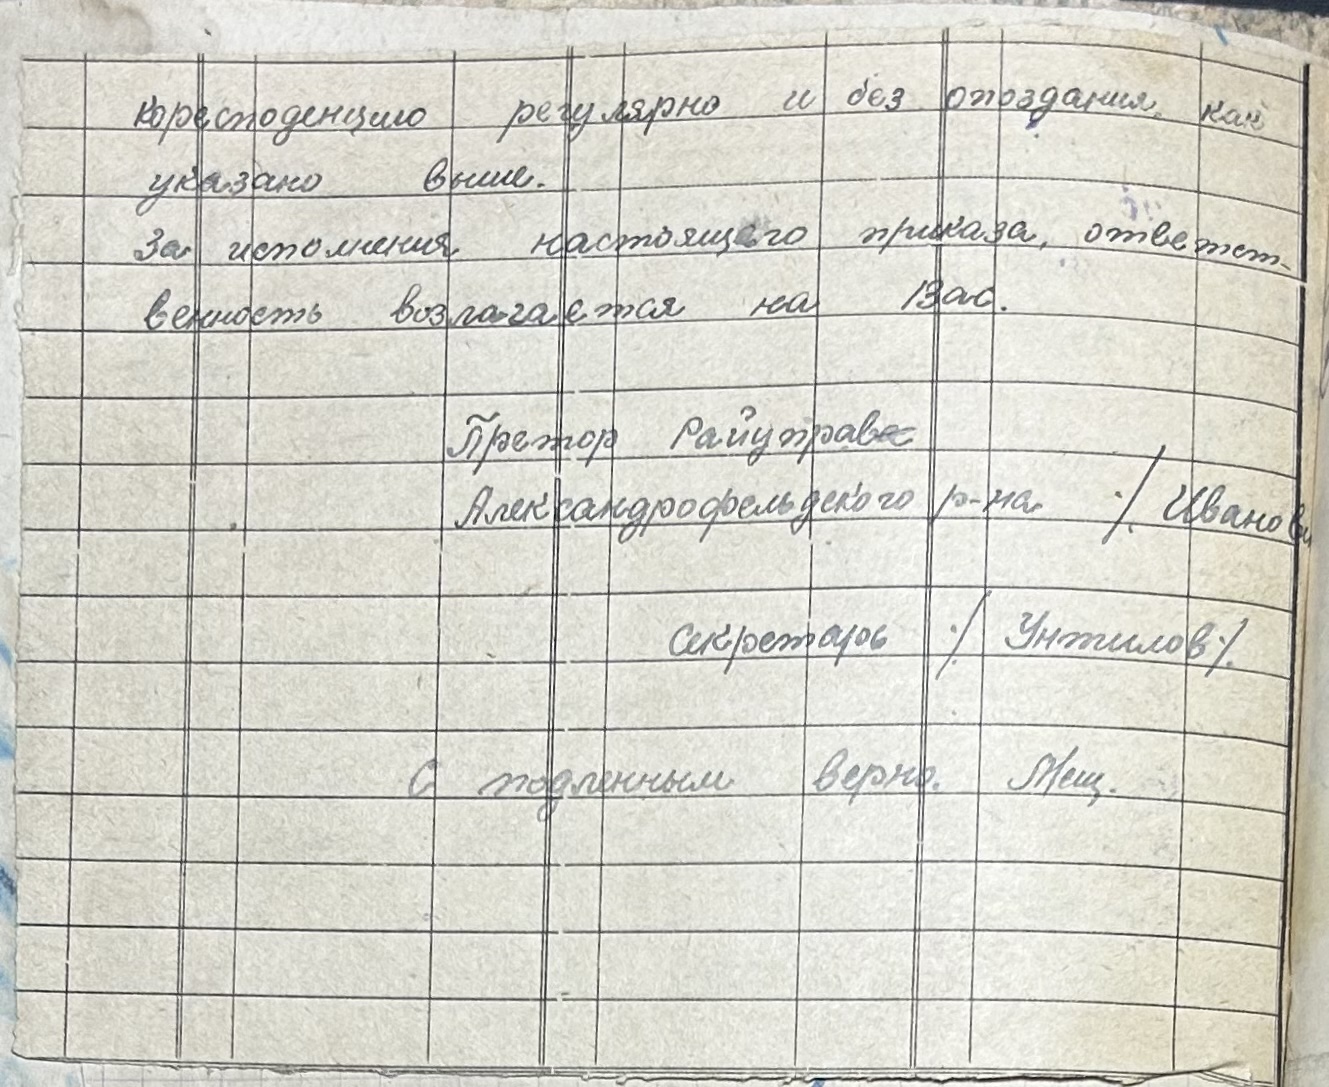 коресподенцию регулярно и без опоздания, как
указано выше.
За исполнения настоящего приказа, ответст-
венность возлагается на Вас.
Претор Райуправ
Александрофельдского р-на ·/. Иванов
Секретарь ·/. Унтилов ·/.
С подленным верно. Мещ.